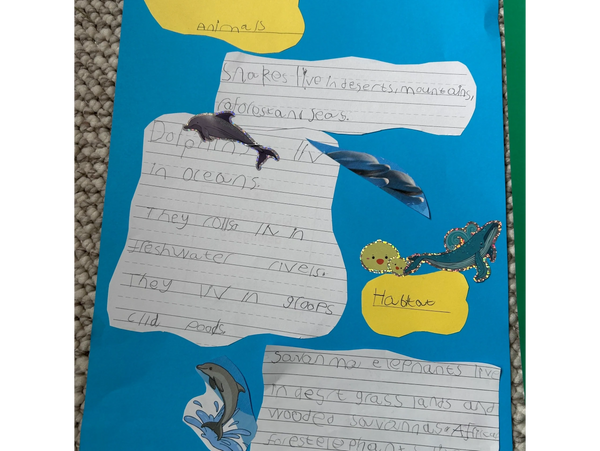 Animals
Snakes live in deserts, mountains,
and seas.
Dolphins
in oceans.
They IN in
freshwater rivers.
They IN in groops
clld poods
Habtat
Savanna elephants live
in desrt grass lands and
wooded savannas. African
forest elephant